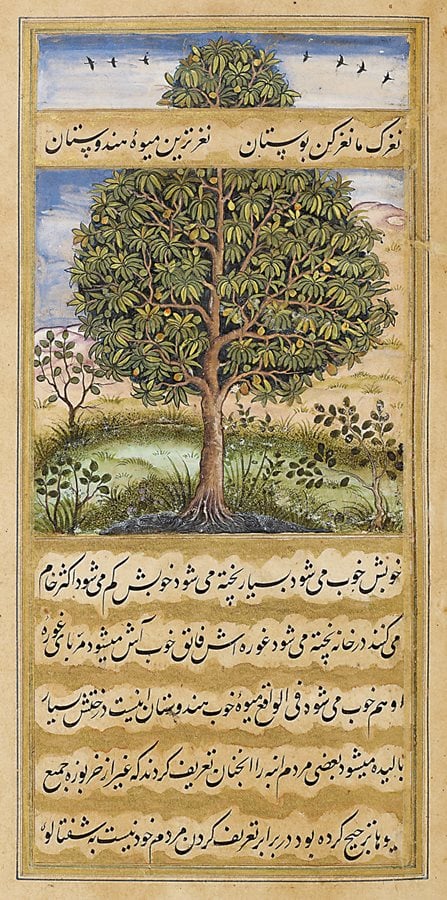 نغزک ما نغز کن بوستان نغزترین میوهٔ هندوستان
خوبش خوب می شود بسیار پخته می شود خوبش کم می شود اکثر خام
می کنند در خانه پخته می شود غوره اش فائق خوب آش میشود مربای غوره
او هم خوب می شود فی الواقع میوهٔ خوب هندوستان اینست درختش بسیار
بالیده میشود بعضی مردم انبه را آنچنان تعریف کردند که غیر از خربوزه جمیع
میوها ترجیح کرده بود در برابر تعریف کردن مردم خود نیست به شفتالو